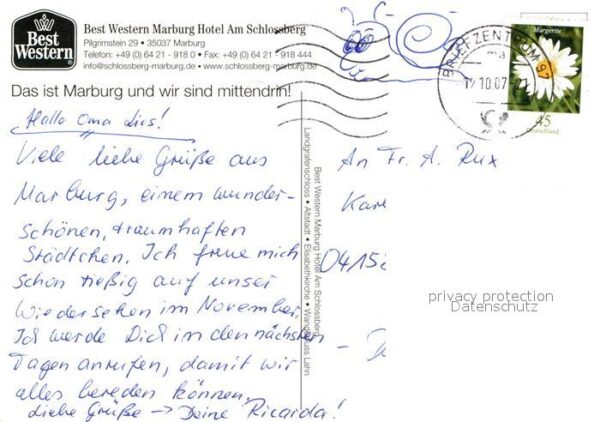 Best Western Marburg Hotel Am Schlossberg
Pilgrimstein 29 • 35037 Marburg
Telefon: +49 (0) 64 21 - 918 0 • Fax: +49 (0) 64 21 - 918 444
info@schlossberg-marburg.de • www.schlossberg-marburg.de
Best
Western
Das ist Marburg und wir sind mittendrin!
Hallo Oma Lis!
Viele liebe Grüße aus
Marburg, einem wunder-
schönen, traumhaften
Städtchen. Ich freue mich
schon rießig auf unser
Wiedersehen im November.
Ich werde Dich in den nächsten
Tagen anrufen, damit wir
alles bereden können.
Liebe Grüße → Deine Ricarda!
Best Western Marburg Hotel Am Schlossberg
Landgrafenschloss • Altstadt • Elisabethkirche •
BRIEFZENTRUM
10.07
Margerite
45
Deutschland
An Fr. A. Rux
04158
privacy protection
Datenschutz